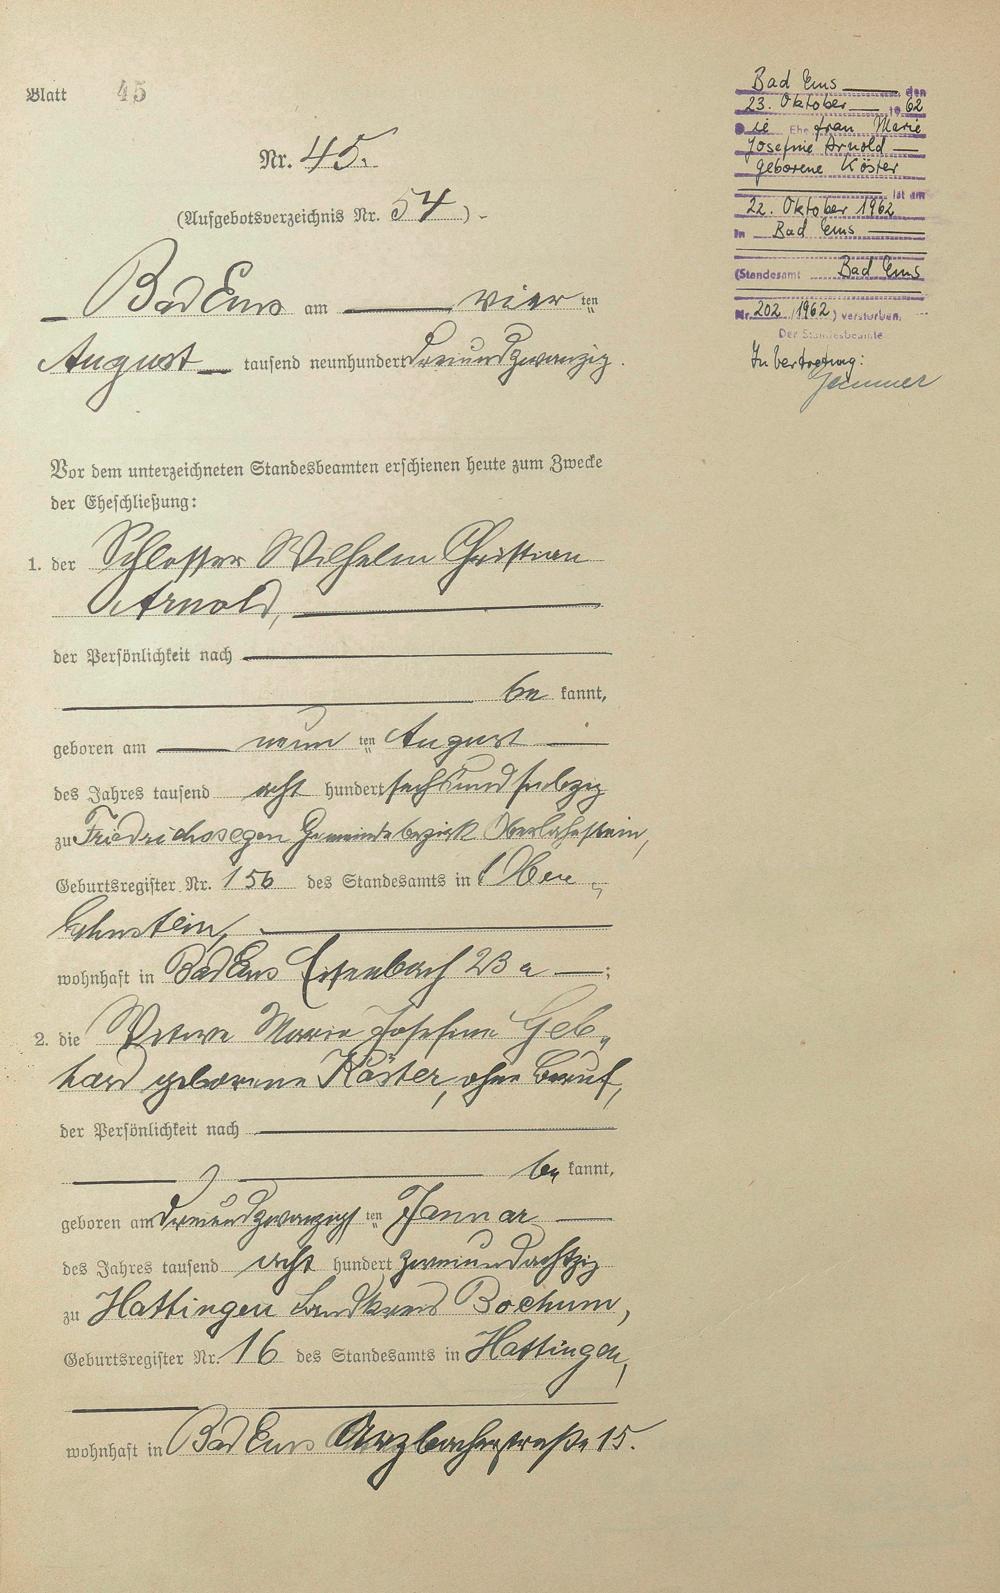 Blatt 45
Nr. 45.
(Aufgebotsverzeichnis Nr. 54).
Bad Ems am vier ten
August tausend neunhundert dreiundzwanzig.
Vor dem unterzeichneten Standesbeamten erschienen heute zum Zwecke
der Eheschließung:
1. der Schlosser Wilhelm Christian
Arnold,
der Persönlichkeit nach
be kannt,
geboren am neun ten August
des Jahres tausend acht hundert sechsundsiebzig
zu Friedrichssegen Gemeindebezirk Oberlahnstein,
Geburtsregister Nr. 156 des Standesamts in Ober
lahnstein,
wohnhaft in Bad Ems 23 a ;
2. die Witwe Marie Josefine Geb
hard geborene Köster, ohne Beruf,
der Persönlichkeit nach
be kannt,
geboren am dreiundzwanzigs ten Januar
des Jahres tausend acht hundert zweiundachtzig
zu Hattingen Landkreis Bochum,
Geburtsregister Nr. 16 des Standesamts in Hattingen,
wohnhaft in Bad Ems Arzbacherstraße 15.
Bad Ems, den
23. Oktober 19 62
Die Ehefrau Marie
Josefine Arnold
geborene Köster
ist am
22. Oktober 1962
in Bad Ems
(Standesamt Bad Ems
Nr. 202 /1962) verstorben.
Der Standesbeamte
In Vertretung: